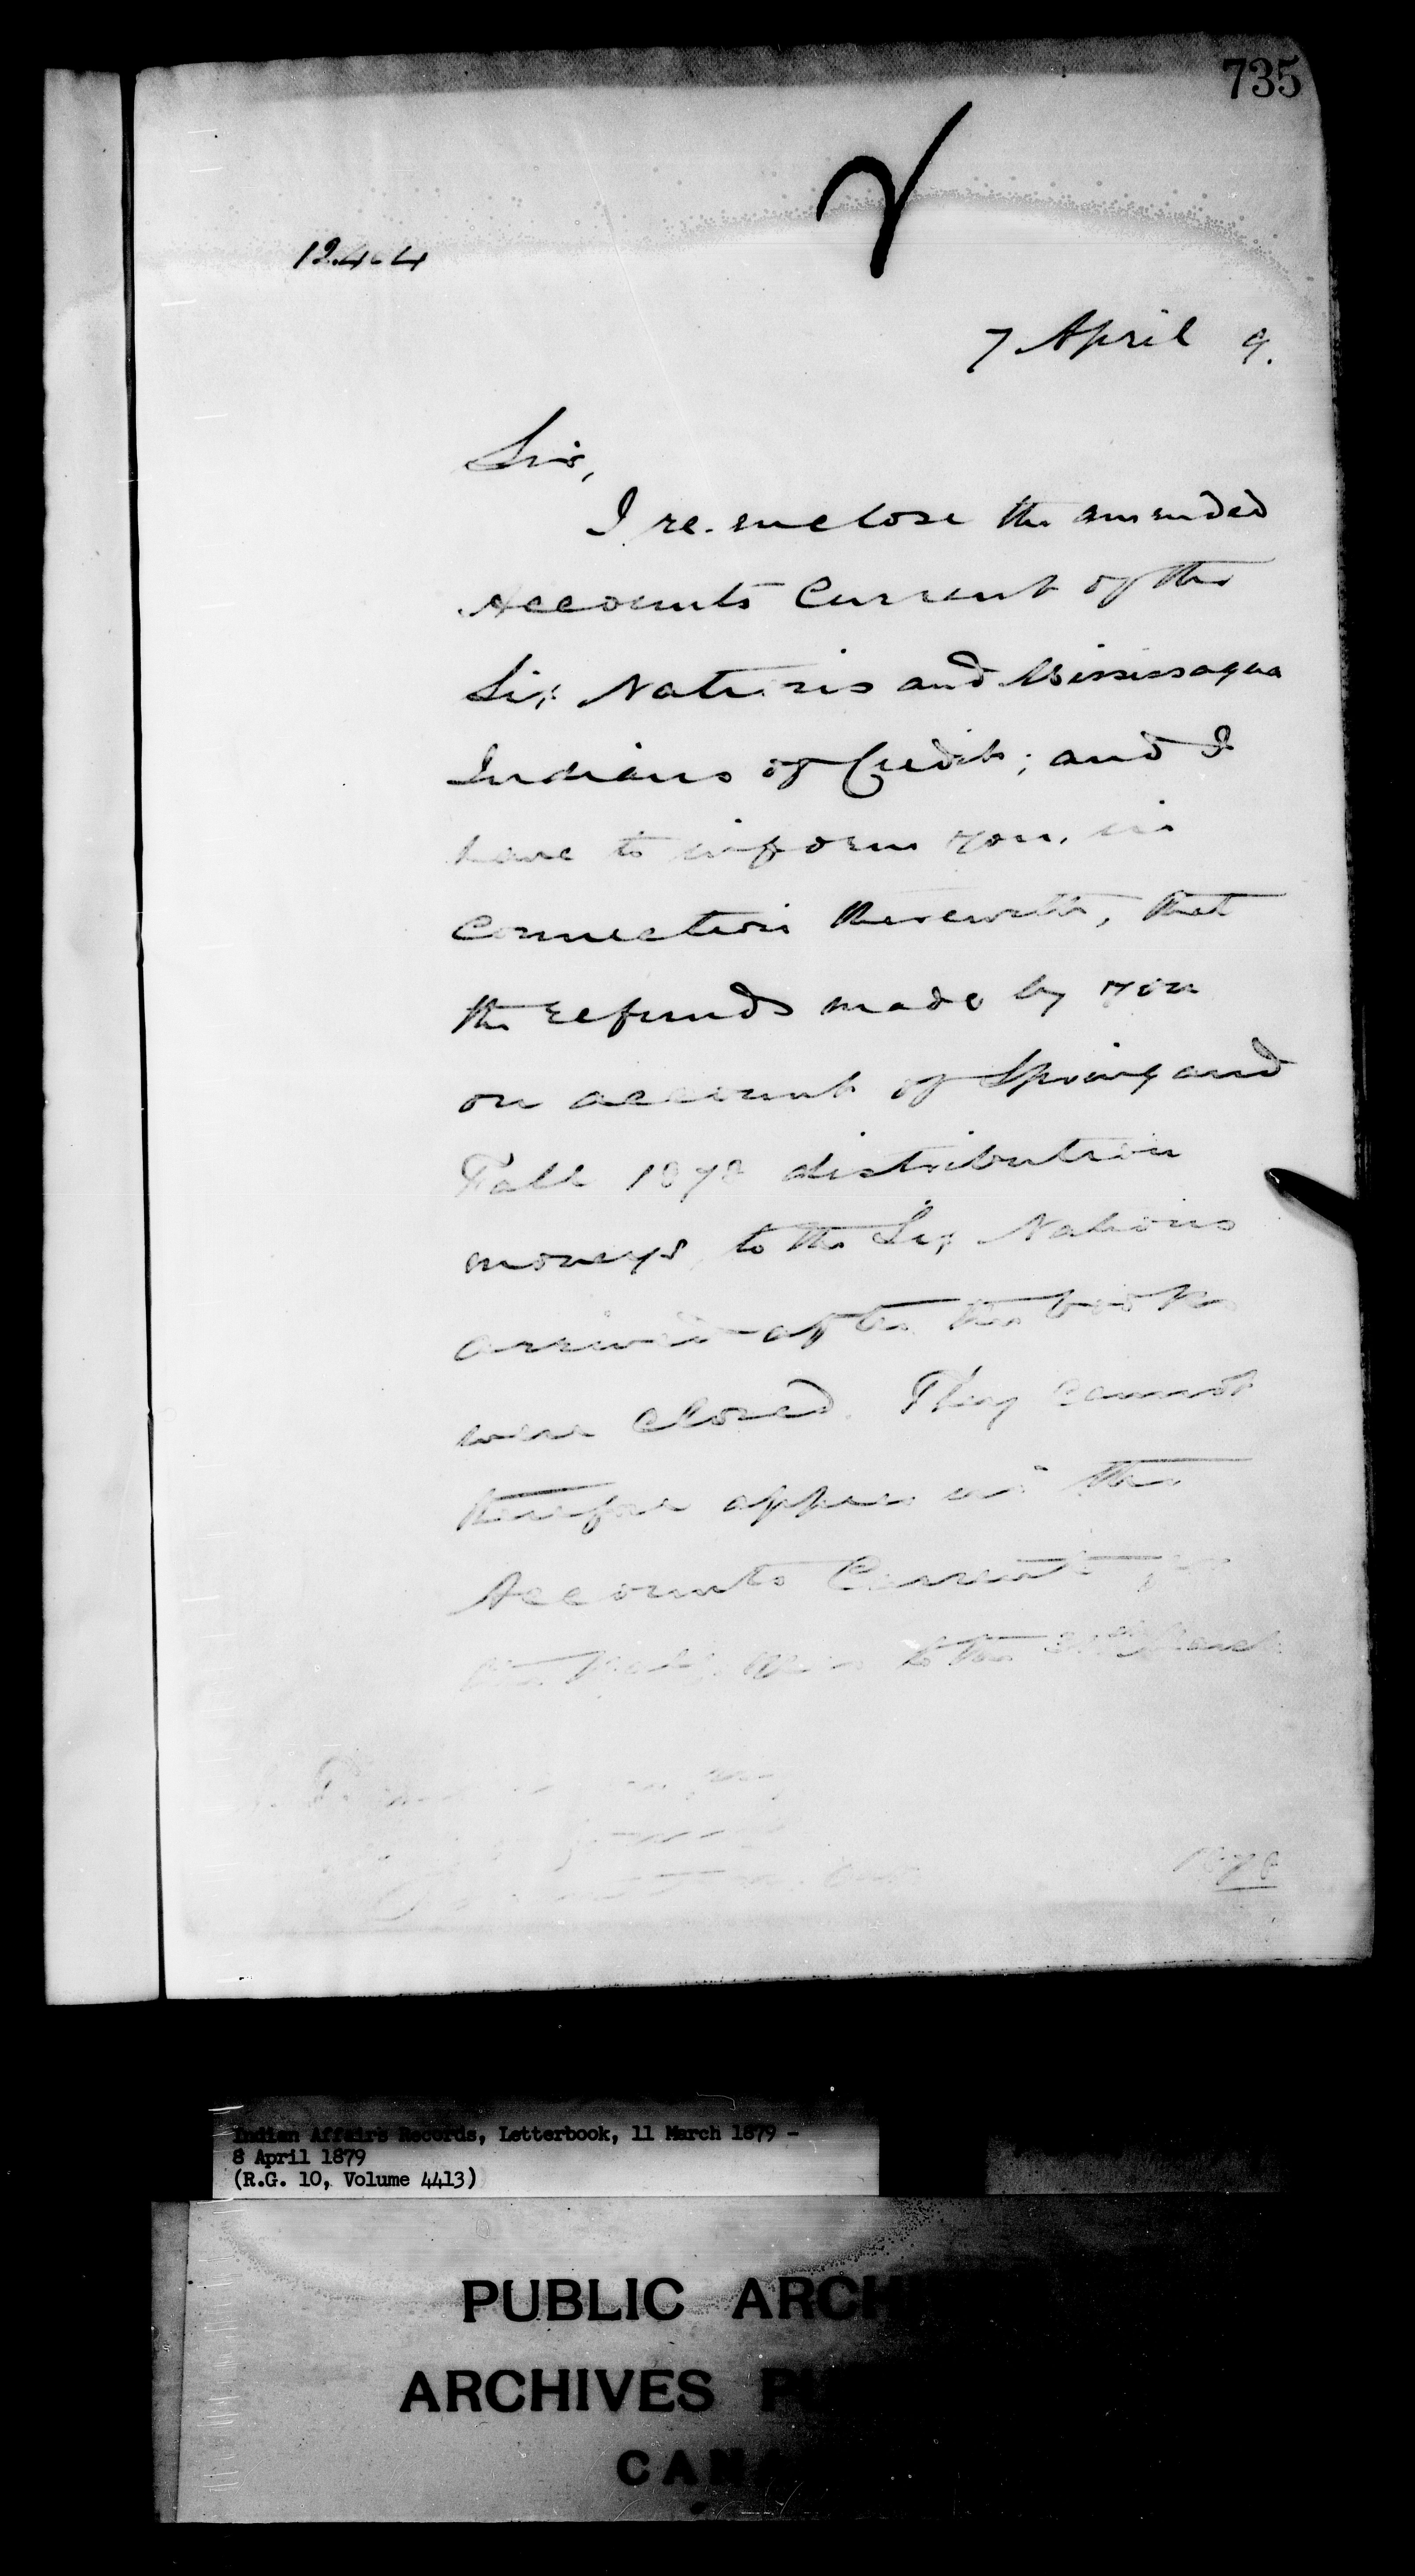 735
7 April 9.
Sir,
I re-enclose the amended
Accounts Current of the
Six Nations and Mississagua
Indians of Credit; and I
have to inform you, in
connection therewith, that
the refunds made by you
on account of Spring and
Fall 1878 distribution
moneys, to the Six Nations
arrived after the books
were closed. They cannot
therefore appear in the
Accounts Current for
to the 31st
Indian Affairs Records, Letterbook, 11 March 1879 -
8 April 1879
(R.G. 10, Volume 4413)
PUBLIC ARCH
ARCHIVES PU
CANA